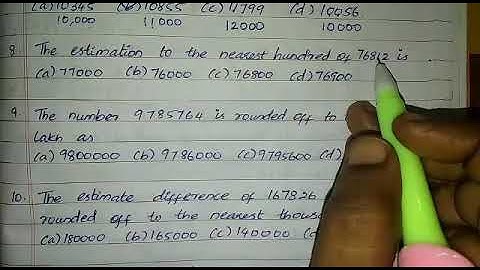 (a) 10345 (b) 10855 (c) 11799 (d) 10056
10,000 11000 12000 10000
8 The estimation to the nearest hundred of 76812 is
(a) 77000 (b) 76000 (c) 76800 (d) 76900
9. The number 9785764 is rounded off to
lakh as
(a) 9800000 (b) 9786000 (c) 9795600 (d)
10. The estimate difference of 167826
rounded off to the nearest thous
(a) 180000 (b) 165000 (c) 140000 (d